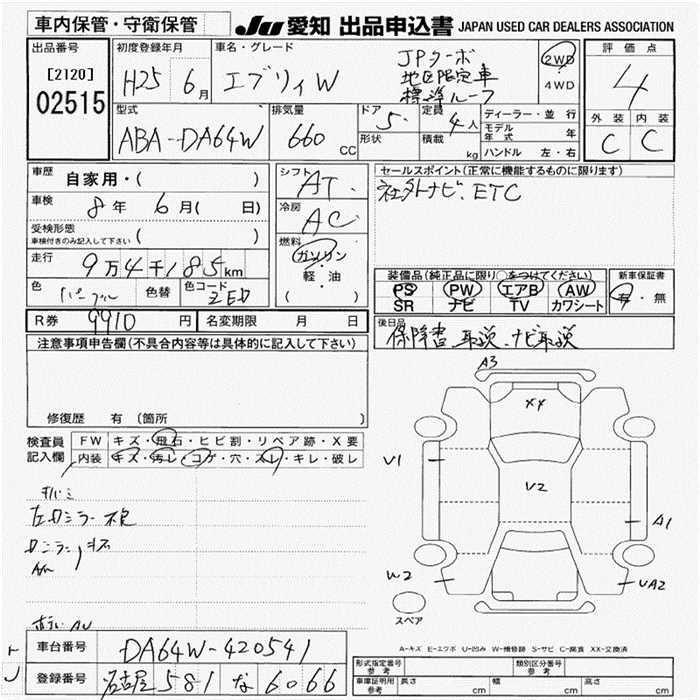 車内保管・守衛保管
JU 愛知 出品申込書 JAPAN USED CAR DEALERS ASSOCIATION
出品番号
[2120]
02515
初度登録年月
H25 6月
車名・グレード
エブリィW
JPターボ
地区限定車
標準ルーフ
2WD
4WD
評価点
4
外装 内装
C C
型式
ABA-DA64W
排気量
660 CC
ドア 5
形状
定員 4人
積載 kg
ディーラー・並行
モデル年式 年
ハンドル 左・右
車歴 自家用・( )
車検 8年 6月( 日)
受検形態
車検付きのみ記入して下さい ( )
走行 9万4千185km
色 パープル 色替 色コード ZED
シフト AT
冷房 AC
燃料 ガソリン
軽・油
( )
セールスポイント(正常に機能するものに限ります)
社外ナビ、ETC
装備品(純正品に限り○をつけてください)
PS PW エアB AW
SR ナビ TV カワシート
新車保証書
有・無
R券 9910 円 名変期限 月 日
後日品
保障書 取説、ナビ取説
注意事項申告欄(不具合内容等は具体的に記入して下さい)
修復歴 有 (箇所 )
検査員
記入欄
FW キズ・飛石・ヒビ割・リペア跡・X要
内装 キズ・汚レ・コゲ・穴・スレ・キレ・破レ
左ロミラー不良
A3
XX
V1
V2
A1
W2
UA2
スペア
A-キズ E-エクボ U-凹み W-補修跡 S-サビ C-腐食 XX-交換済
車台番号 DA64W-420541
登録番号 名古屋 581 な 6066
形式指定番号
参考
類別区分番号
参考
車庫証明用
参考
長さ cm 幅 cm 高さ cm